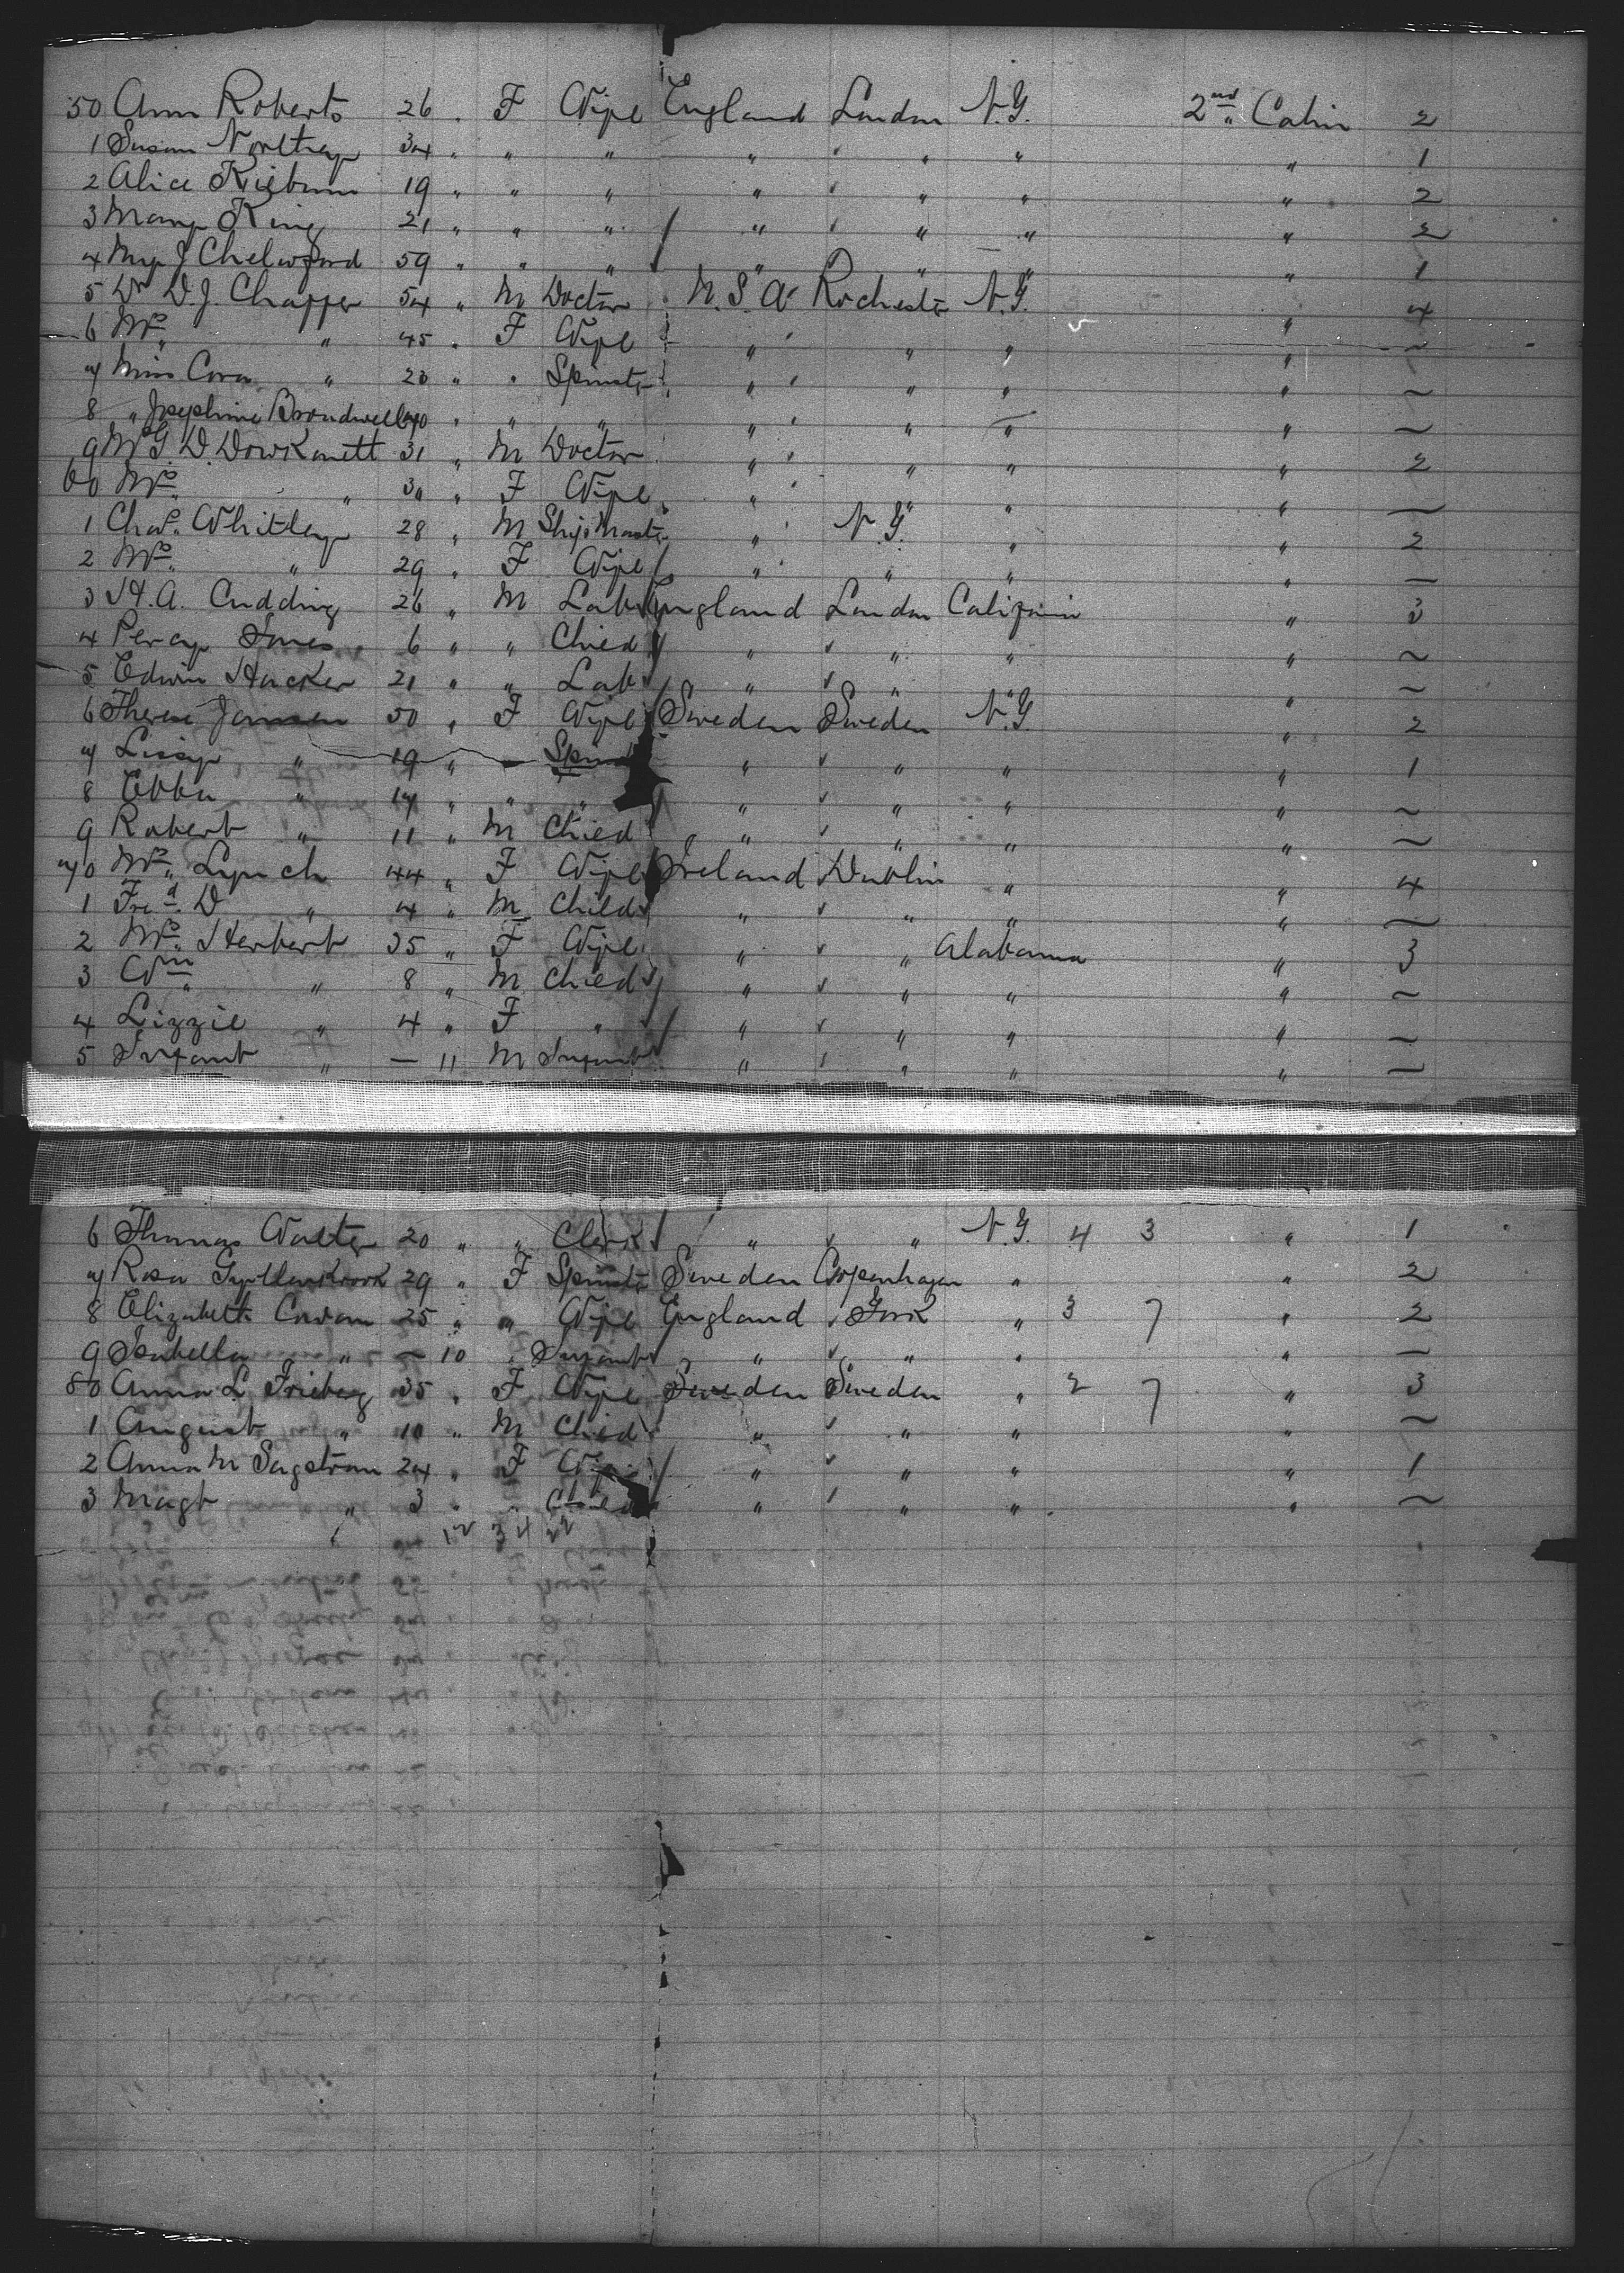 50 Ann Roberts 26 " F Wife England London N.Y. 2nd Cabin 2
1 Susan 34 " " " " " " " 1
2 Alice 19 " " " " " " " 2
3 Mary King 21 " " " " " " " 2
4 J Chelwford 59 " " " " " " " 1
5 Dr D.J. Chaffer 54 " M Doctor U.S.A. Rochester N.Y. " 4
6 Mrs " 45 " F Wife " " " " ~
7 Miss Cora " 20 " " Spinster " " " " ~
8 " Josephine Broadwell " " " " " " " ~
9 G. D. Dowkonett 31 " M Doctor " " " " 2
60 Mrs " " F Wife " " " " —
1 Chas. Whitley 28 " M Ship Master " N.Y. " " 2
2 Mrs " 29 " F Wife " " " " —
3 H.A. Cudding 26 " M Lab England London California " 3
4 Percy Jones 6 " " Child " " " " ~
5 Edwin Hacker 21 " " Lab " " " " ~
6 Therese Jansen 50 " F Wife Sweden Sweden N.Y. " 2
7 Lissy " 19 " Spinst " " " " 1
8 Ebba " 17 " " " " " " " ~
9 Robert " 11 " M Child " " " " ~
70 Mrs Lynch 44 " F Wife Ireland Dublin " " 4
1 Fred. D " 4 " M Child " " " " —
2 Mrs Herbert 35 " F Wife " " Alabama " 3
3 Wm " 8 " M Child " " " " ~
4 Lizzie " 4 " F " " " " " ~
5 Infant " — 11 M Infant " " " " —
6 Thomas Walter 20 " " Clerk " " N.Y. 4 3 " 1
7 Rosa 29 " F Spinster Sweden Copenhagen " " 2
8 Elizabeth Cowan 25 " " Wife England York " 3 7 " 2
9 Isabella " — 10 " Infant " " " " —
80 Anna L. Frieberg 35 " F Wife Sweden Sweden " 2 7 " 3
1 August " 10 " M Child " " " " ~
2 Anna M Sagstrom 24 " F Wife " " " " 1
3 Magt " 3 " " Child " " " " ~
12 34 22